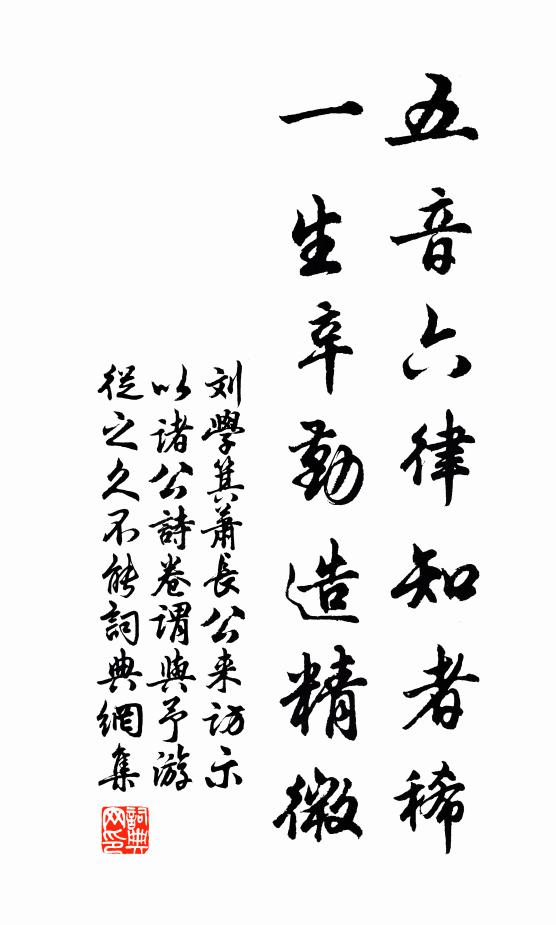 五音六律知者稀
一生辛勤造精微
刘學箕蕭長公来访示
以诸公詩卷謂與予游
從之久不能詞典網集
詞典网印